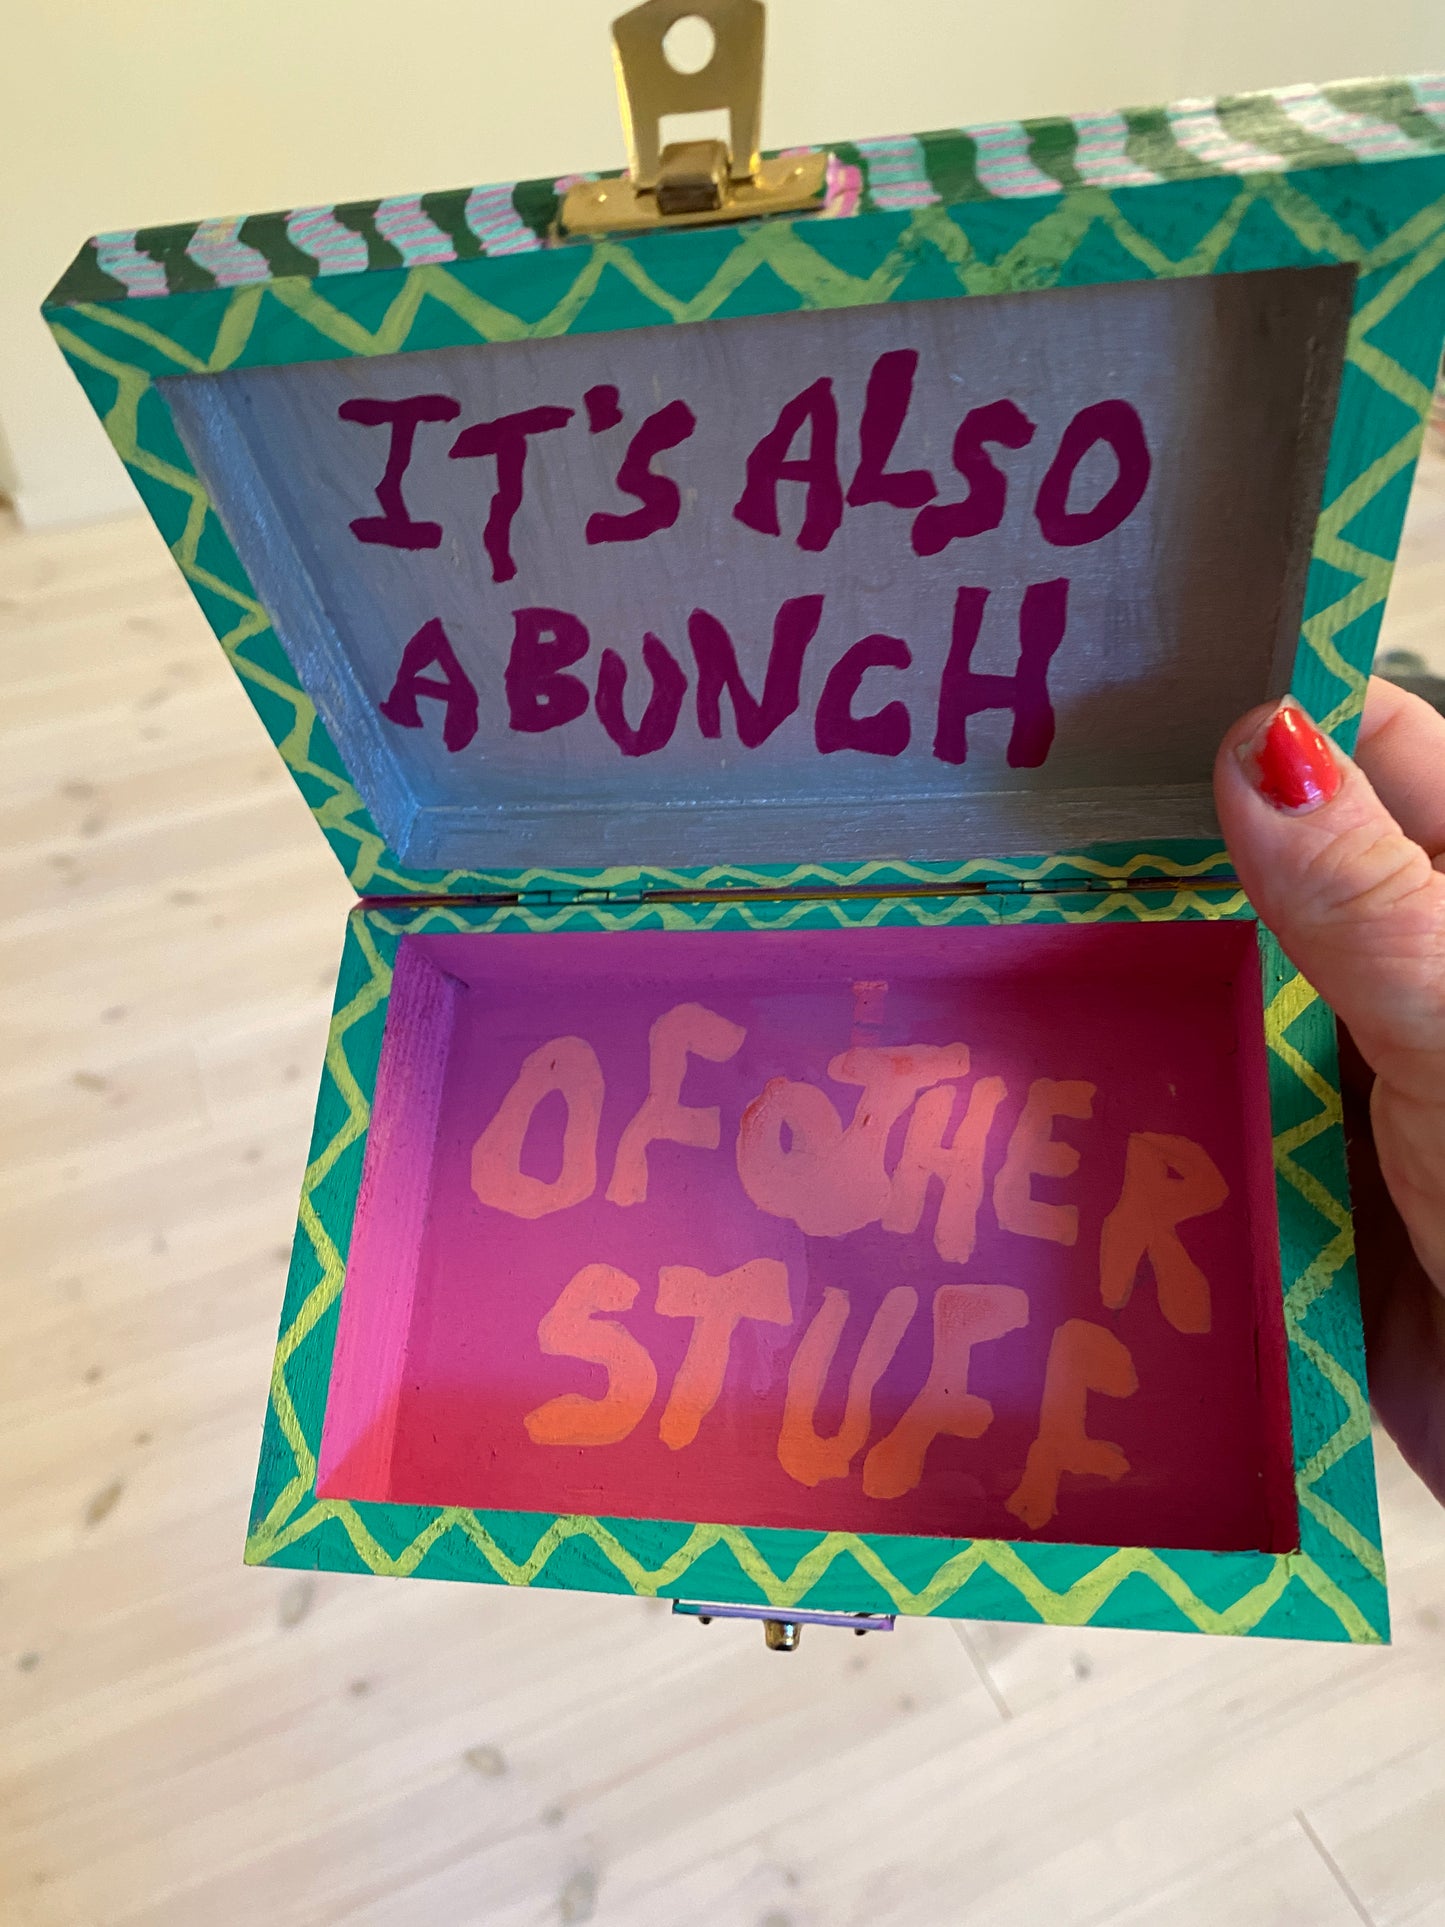 IT'S ALSO
A BUNCH
OF OTHER
STUFF